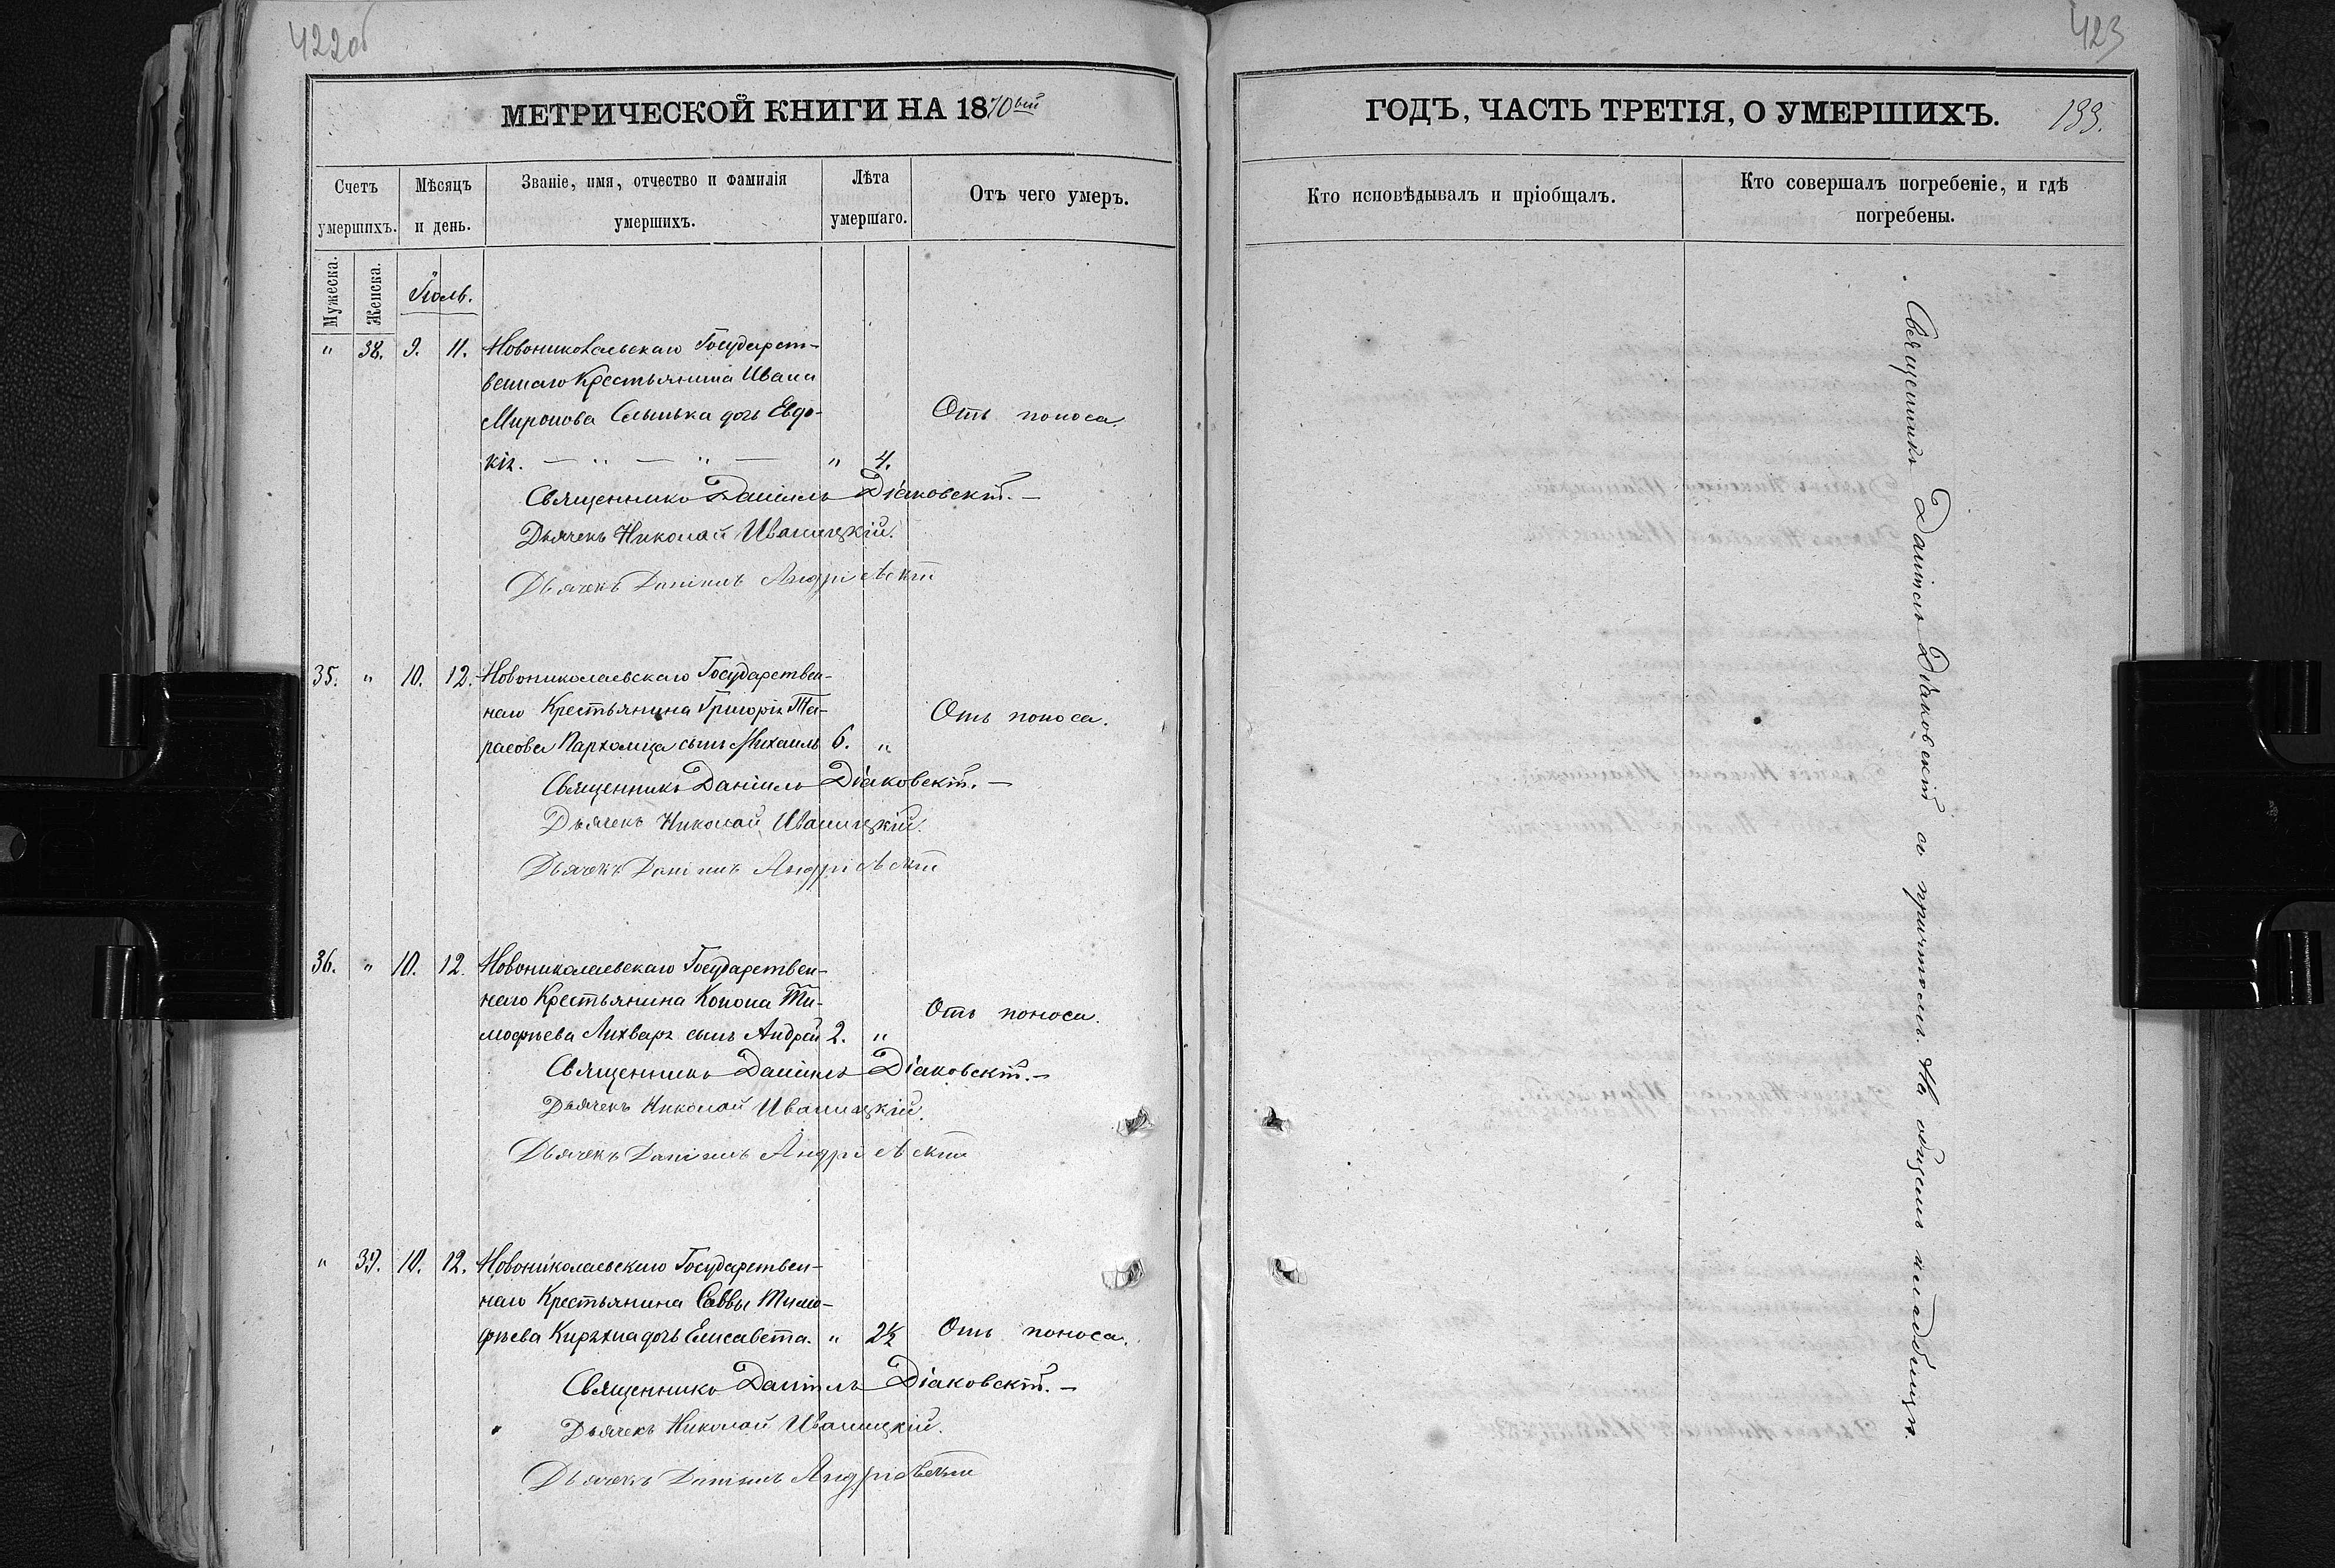 422об
МЕТРИЧЕСКОЙ КНИГИ НА 1870ый
Счетъ умершихъ.
Мѣсяцъ и день.
Званіе, имя, отчество и фамилія умершихъ.
Лѣта умершаго.
Отъ чего умеръ.
Мужеска.
Женска.
Іюль.
" 38. 9. 11. Новониколаевскаго Государст-
веннаго Крестьянина Ивана
Миронова дочь Евдо- Отъ поноса.
кія. — " — " — " 4.
Священникъ Даніилъ Діаковскій. —
Дьячекъ Николай Иваницкій.
Дьячекъ Даніилъ Андріевскій
35. " 10. 12. Новониколаевскаго Государствен-
наго Крестьянина Григорія Та- Отъ поноса.
расова Пархомца сынъ Михаилъ 6. "
Священникъ Даніилъ Діаковскій. —
Дьячекъ Николай Иваницкій.
Дьячекъ Даніилъ Андріевскій
36. " 10. 12. Новониколаевскаго Государствен-
наго Крестьянина Конона Ти- Отъ поноса.
мофѣева Лихваря сынъ Андрей 2. "
Священникъ Даніилъ Діаковскій. —
Дьячекъ Николай Иваницкій.
Дьячекъ Даніилъ Андріевскій
" 39. 10. 12. Новониколаевскаго Государствен-
наго Крестьянина Саввы Тимо-
фѣева дочь Елисавета. " 2½ Отъ поноса.
Священникъ Даніилъ Діаковскій. —
Дьячекъ Николай Иваницкій.
Дьячекъ Даніилъ Андріевскій
423
ГОДЪ, ЧАСТЬ ТРЕТІЯ, О УМЕРШИХЪ. 133.
Кто исповѣдывалъ и пріобщалъ.
Кто совершалъ погребеніе, и гдѣ погребены.
Священникъ Даніилъ Діаковскій съ причтомъ. На общемъ кладбищѣ.